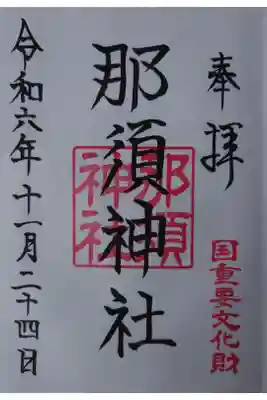 奉拝
国重要文化財
那須神社
那須神社
令和六年十一月二十四日